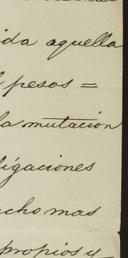 ida aquella
pesos =
la mutacion
ligaciones
ucho mas
propios y